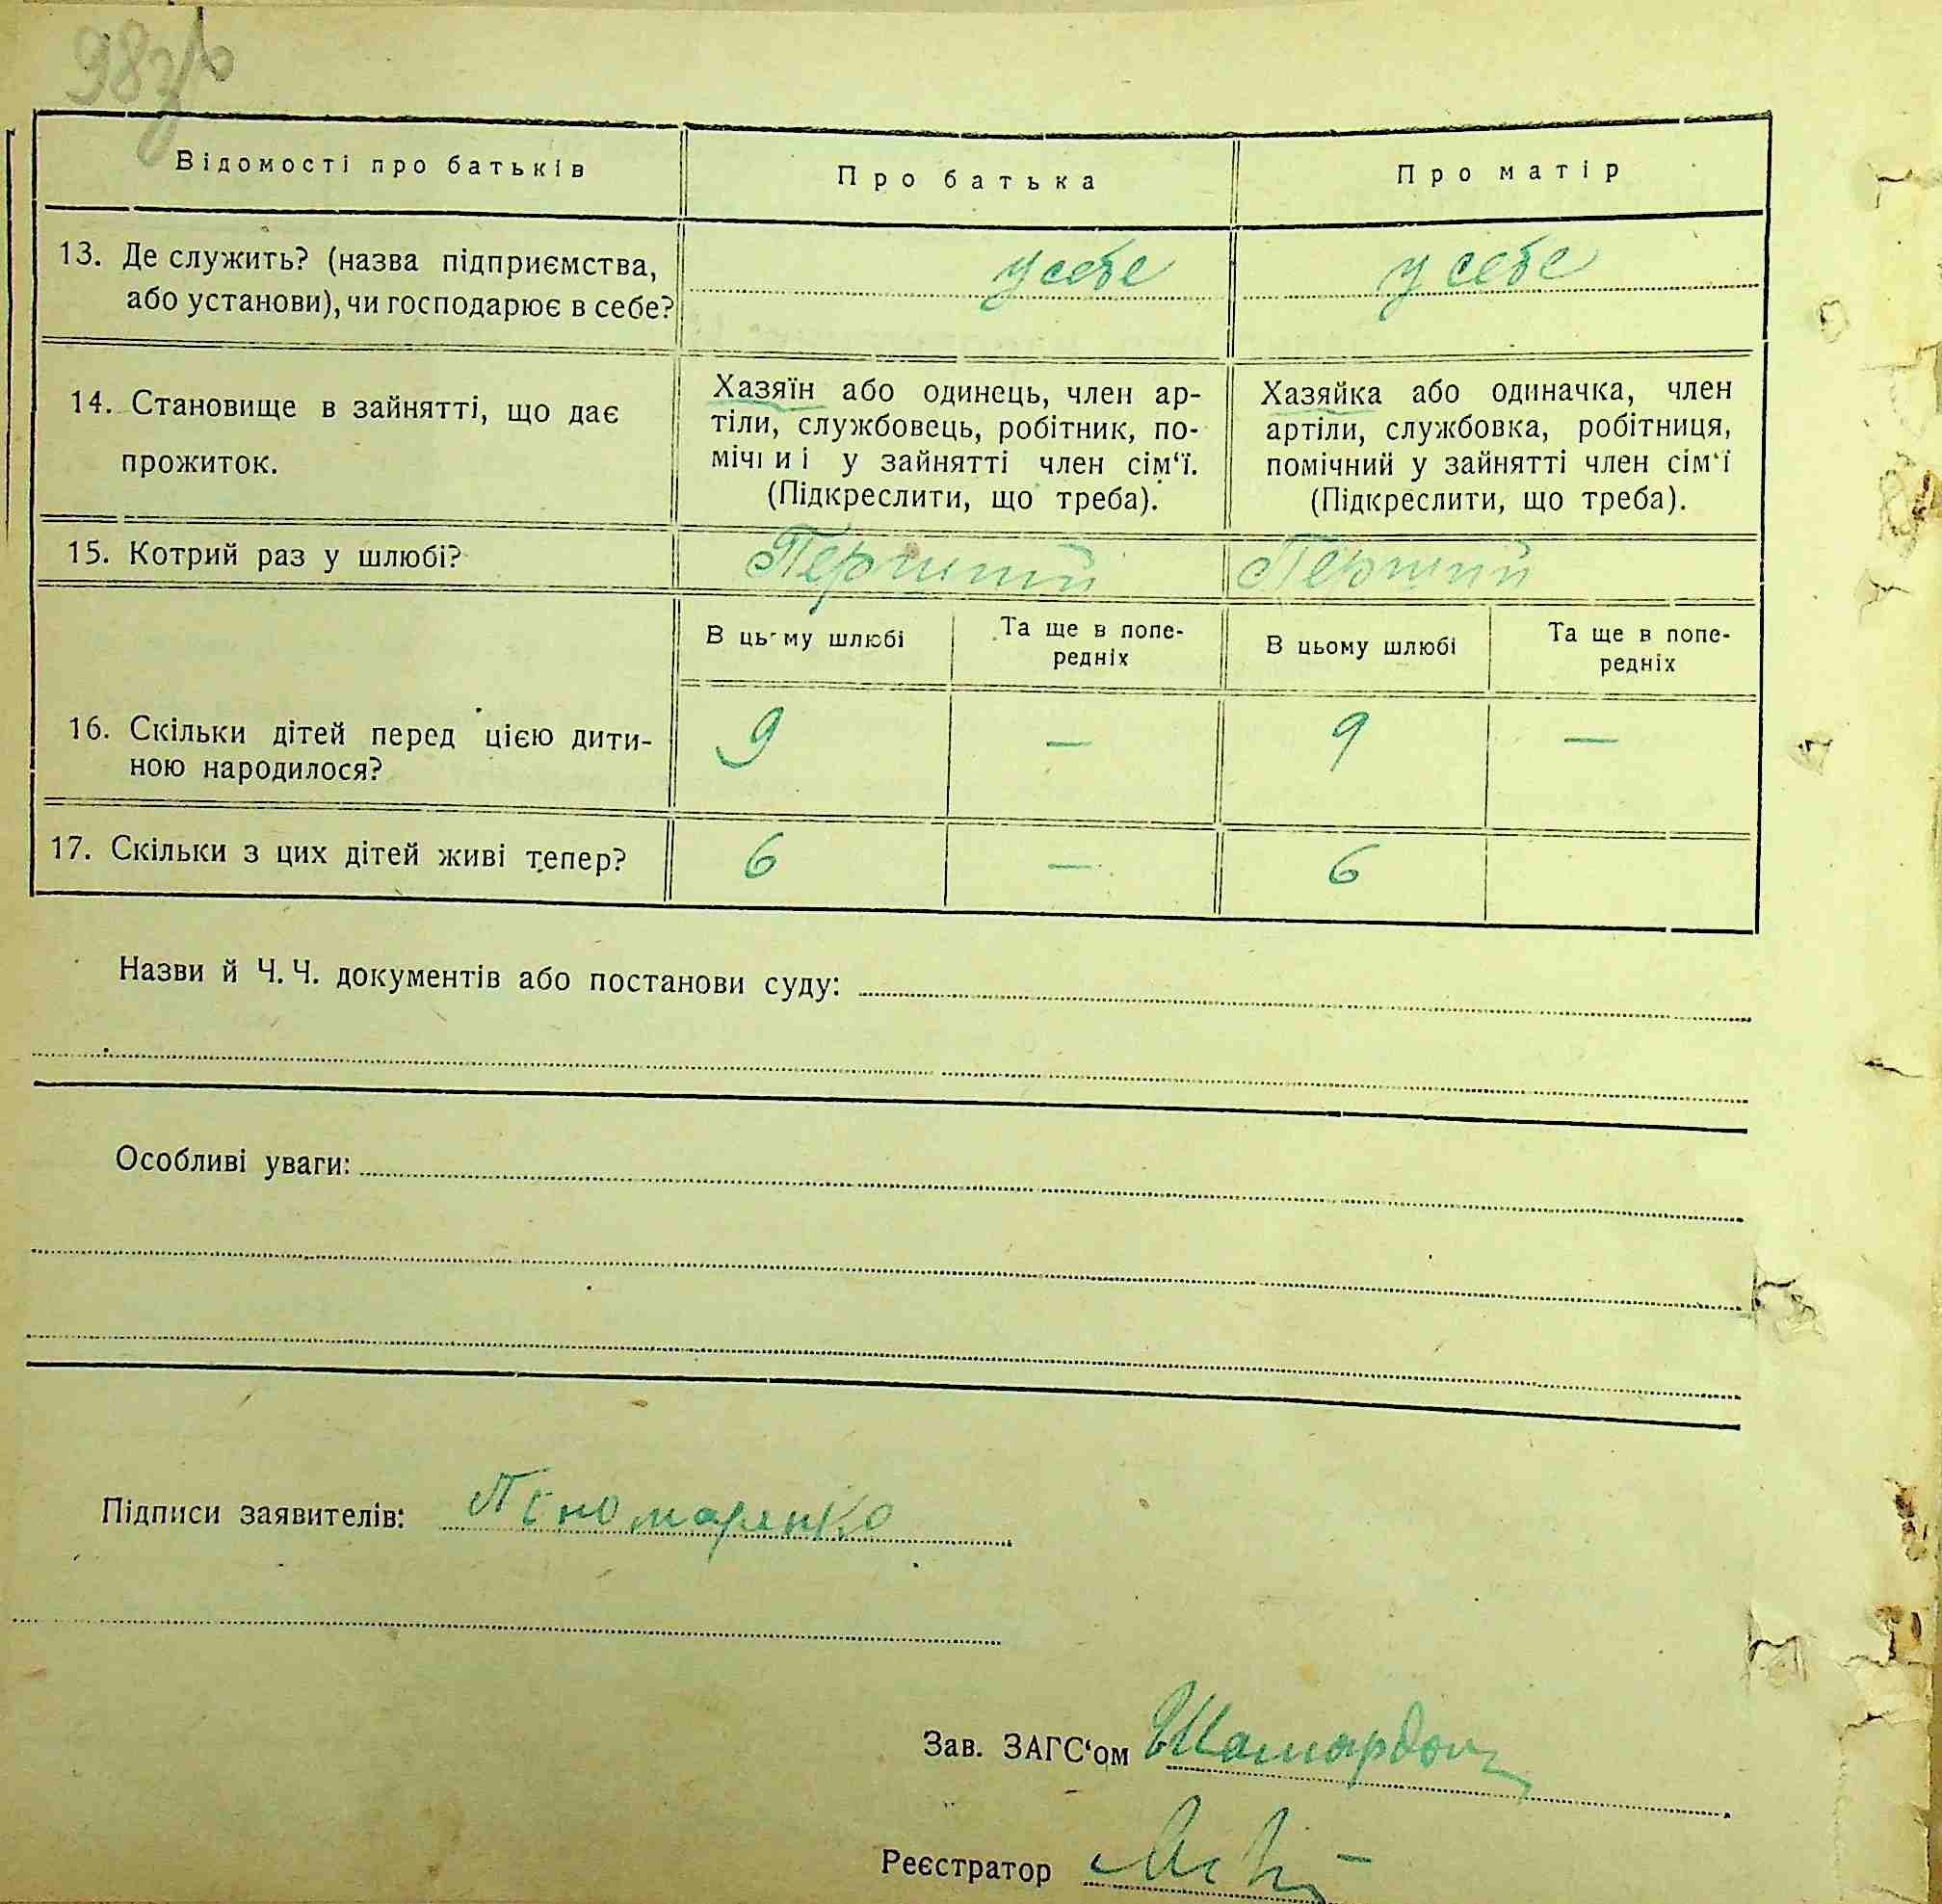 98зв
Відомості про батьків
Про батька
Про матір
13. Де служить? (назва підприємства,
або установи), чи господарює в себе?
у себе
у себе
14. Становище в зайнятті, що дає
прожиток.
Хазяїн або одинець, член ар-
тіли, службовець, робітник, по-
мічниі у зайнятті член сім‘ї.
(Підкреслити, що треба).
Хазяйка або одиначка, член
артіли, службовка, робітниця,
помічний у зайнятті член сім‘ї
(Підкреслити, що треба).
15. Котрий раз у шлюбі?
Перший
Перший
В цьому шлюбі
Та ще в попе-
редніх
В цьому шлюбі
Та ще в попе-
редніх
16. Скільки дітей перед цією дити-
ною народилося?
9
—
9
—
17. Скільки з цих дітей живі тепер?
6
—
6
Назви й Ч. Ч. документів або постанови суду:
Особливі уваги:
Підписи заявителів: Пономаренко
Зав. ЗАГС‘ом
Реєстратор